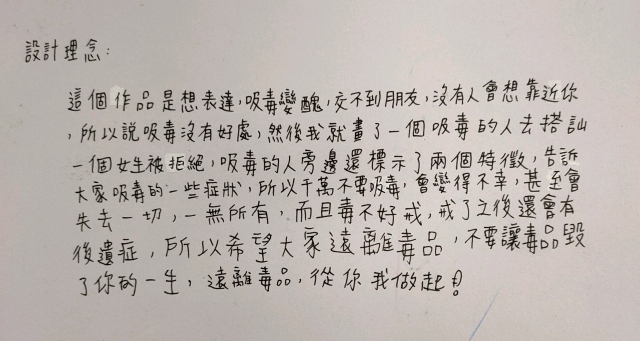 設計理念:
這個作品是想表達,吸毒變醜,交不到朋友,沒有人會想靠近你
,所以說吸毒沒有好處,然後我就畫了一個吸毒的人去搭訕
一個女生被拒絕,吸毒的人旁邊還標示了兩個特徵,告訴
大家吸毒的一些症狀,所以千萬不要吸毒,會變得不幸,甚至會
失去一切,一無所有,而且毒不好戒,戒了之後還會有
後遺症,所以希望大家遠離毒品,不要讓毒品毀
了你的一生,遠離毒品,從你我做起!